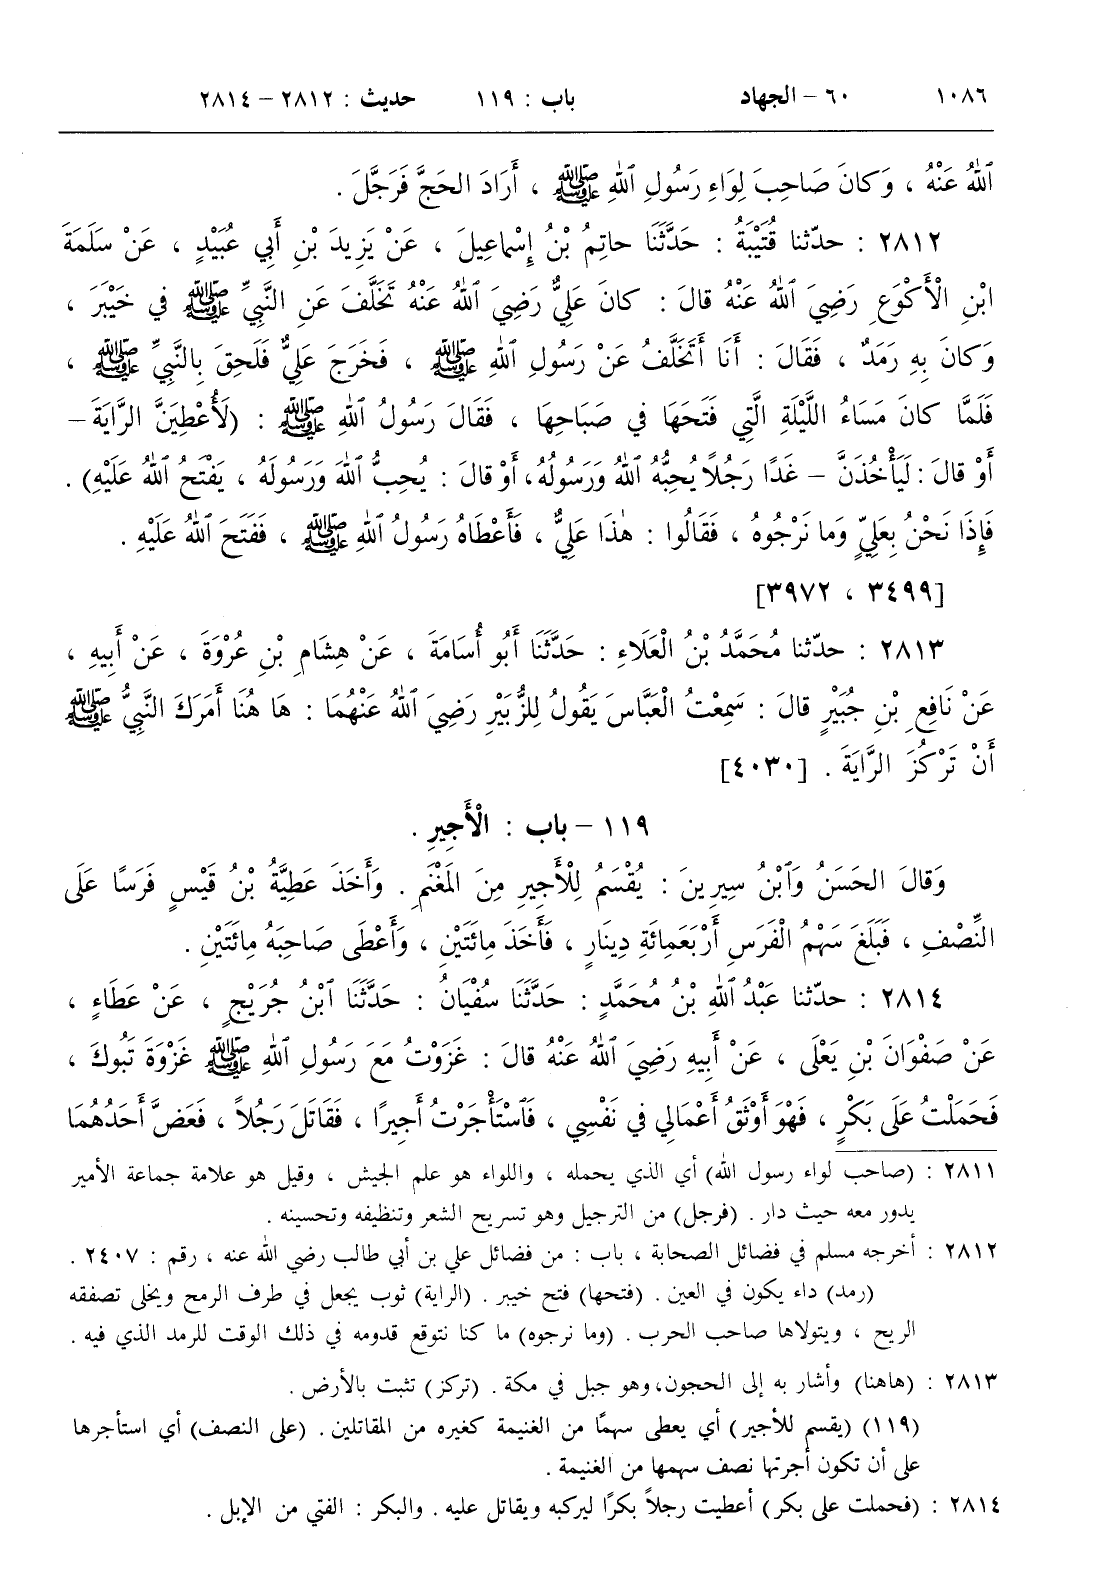 ١٠٨٦ ٦٠ – الجهاد باب : ١١٩ حديث : ٢٨١٢ – ٢٨١٤
ٱللهُ عَنْهُ ، وَكانَ صَاحِبَ لِوَاءِ رَسُولِ ٱللهِ ﷺ ، أَرَادَ الحَجَّ فَرَجَّلَ .
٢٨١٢ : حدّثنا قُتَيْبَةُ : حَدَّثَنَا حاتِمُ بْنُ إِسْماعِيلَ ، عَنْ يَزِيدَ بْنِ أَبِي عُبَيْدٍ ، عَنْ سَلَمَةَ
ابْنِ الْأَكْوَعِ رَضِيَ ٱللهُ عَنْهُ قالَ : كانَ عَلِيٌّ رَضِيَ ٱللهُ عَنْهُ تَخَلَّفَ عَنِ النَّبِيِّ ﷺ في خَيْبَرَ ،
وَكانَ بِهِ رَمَدٌ ، فَقَالَ : أَنَا أَتَخَلَّفُ عَنْ رَسُولِ ٱللهِ ﷺ ، فَخَرَجَ عَلِيٌّ فَلَحِقَ بِالنَّبِيِّ ﷺ ،
فَلَمَّا كانَ مَسَاءُ اللَّيْلَةِ الَّتِي فَتَحَهَا في صَبَاحِهَا ، فَقَالَ رَسُولُ ٱللهِ ﷺ : (لَأُعْطِيَنَّ الرَّايَةَ –
أَوْ قالَ : لَيَأْخُذَنَّ – غَدًا رَجُلًا يُحِبُّهُ ٱللهُ وَرَسُولُهُ، أَوْ قالَ : يُحِبُّ ٱللهَ وَرَسُولَهُ ، يَفْتَحُ ٱللهُ عَلَيْهِ) .
فَإِذَا نَحْنُ بِعَلِيٍّ وَما نَرْجُوهُ ، فَقَالُوا : هٰذَا عَلِيٌّ ، فَأَعْطَاهُ رَسُولُ ٱللهِ ﷺ ، فَفَتَحَ ٱللهُ عَلَيْهِ .
[٣٤٩٩ ، ٣٩٧٢]
٢٨١٣ : حدّثنا مُحَمَّدُ بْنُ الْعَلَاءِ : حَدَّثَنَا أَبُو أُسَامَةَ ، عَنْ هِشَامِ بْنِ عُرْوَةَ ، عَنْ أَبِيهِ ،
عَنْ نَافِعِ بْنِ جُبَيْرٍ قالَ : سَمِعْتُ الْعَبَّاسَ يَقُولُ لِلزُّبَيْرِ رَضِيَ ٱللهُ عَنْهُمَا : هَا هُنَا أَمَرَكَ النَّبِيُّ ﷺ
أَنْ تَرْكُزَ الرَّايَةَ . [٤٠٣٠]
١١٩ – باب : الْأَجِيرِ .
وَقالَ الحَسَنُ وَٱبْنُ سِيرِينَ : يُقْسَمُ لِلْأَجِيرِ مِنَ المَغْنَمِ . وَأَخَذَ عَطِيَّةُ بْنُ قَيْسٍ فَرَسًا عَلَى
النِّصْفِ ، فَبَلَغَ سَهْمُ الْفَرَسِ أَرْبَعَمِائَةِ دِينَارٍ ، فَأَخَذَ مِائَتَيْنِ ، وَأَعْطَى صَاحِبَهُ مِائَتَيْنِ .
٢٨١٤ : حدّثنا عَبْدُ ٱللهِ بْنُ مُحَمَّدٍ : حَدَّثَنَا سُفْيَانُ : حَدَّثَنَا ٱبْنُ جُرَيْجٍ ، عَنْ عَطَاءٍ ،
عَنْ صَفْوَانَ بْنِ يَعْلَى ، عَنْ أَبِيهِ رَضِيَ ٱللهُ عَنْهُ قالَ : غَزَوْتُ مَعَ رَسُولِ ٱللهِ ﷺ غَزْوَةَ تَبُوكَ ،
فَحَمَلْتُ عَلَى بَكْرٍ ، فَهْوَ أَوْثَقُ أَعْمَالِي في نَفْسِي ، فَٱسْتَأْجَرْتُ أَجِيرًا ، فَقَاتَلَ رَجُلاً ، فَعَضَّ أَحَدُهُمَا
٢٨١١ : (صاحب لواء رسول الله) أي الذي يحمله ، واللواء هو علم الجيش ، وقيل هو علامة جماعة الأمير
يدور معه حيث دار . (فرجل) من الترجيل وهو تسريح الشعر وتنظيفه وتحسينه .
٢٨١٢ : أخرجه مسلم في فضائل الصحابة ، باب : من فضائل علي بن أبي طالب رضي الله عنه ، رقم : ٢٤٠٧ .
(رمد) داء يكون في العين . (فتحها) فتح خيبر . (الراية) ثوب يجعل في طرف الرمح ويخلى تصفقه
الريح ، ويتولاها صاحب الحرب . (وما نرجوه) ما كنا نتوقع قدومه في ذلك الوقت للرمد الذي فيه .
٢٨١٣ : (هاهنا) وأشار به إلى الحجون، وهو جبل في مكة . (تركز) تثبت بالأرض .
(١١٩) (يقسم للأجير) أي يعطى سهمًا من الغنيمة كغيره من المقاتلين . (على النصف) أي استأجرها
على أن تكون أجرتها نصف سهمها من الغنيمة .
٢٨١٤ : (فحملت على بكر) أعطيت رجلاً بكرًا ليركبه ويقاتل عليه . والبكر : الفتي من الإبل .